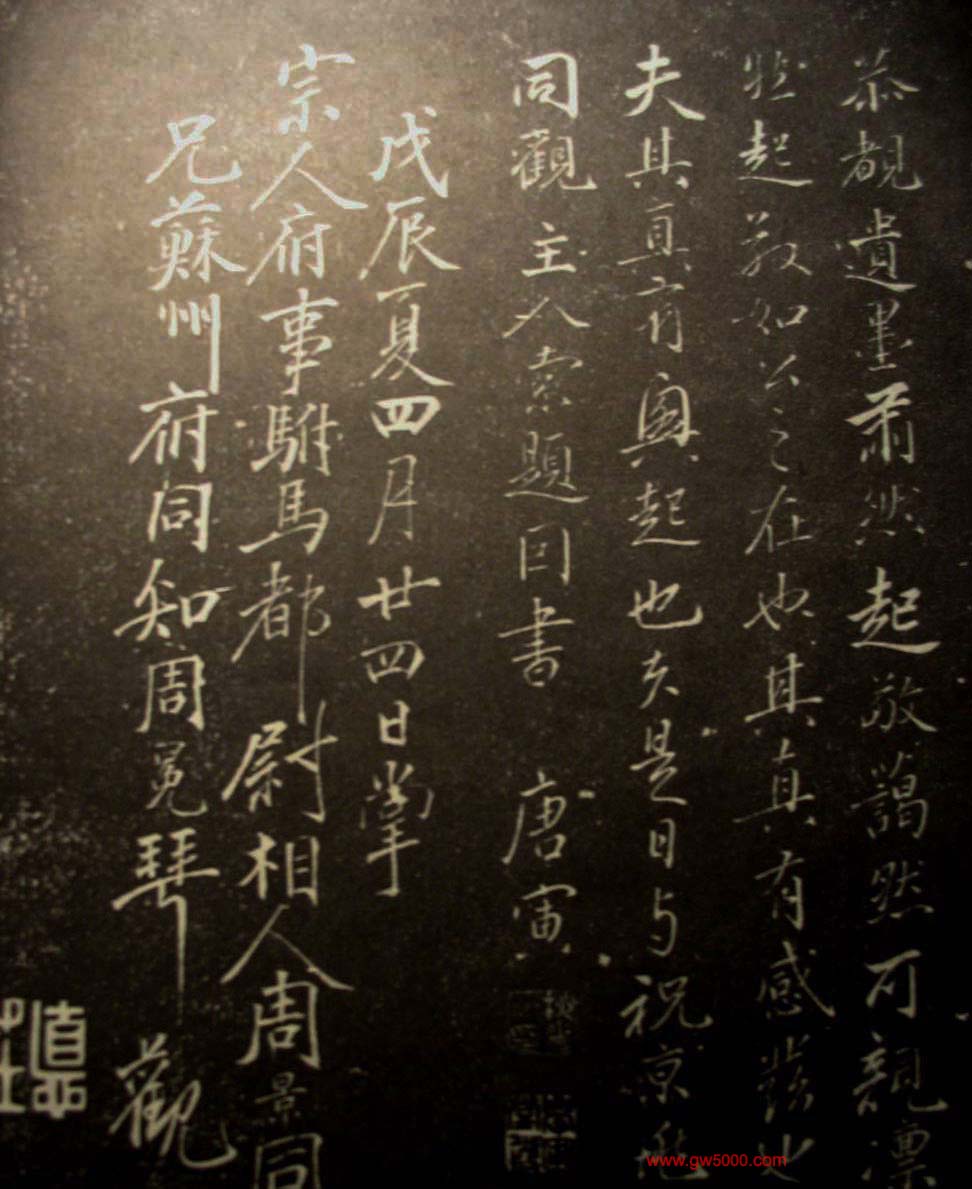 恭覩遺墨肅然起敬藹然可親凛
然起敬如公之在也其真有感發也
夫其真有興起也夫是日与祝京兆
同觀主人索題回書 唐寅
戊辰夏四月廿四日掌
宗人府事駙馬都尉相人周景同
兄蘇州府同知周冕琴觀
www.gw5000.com